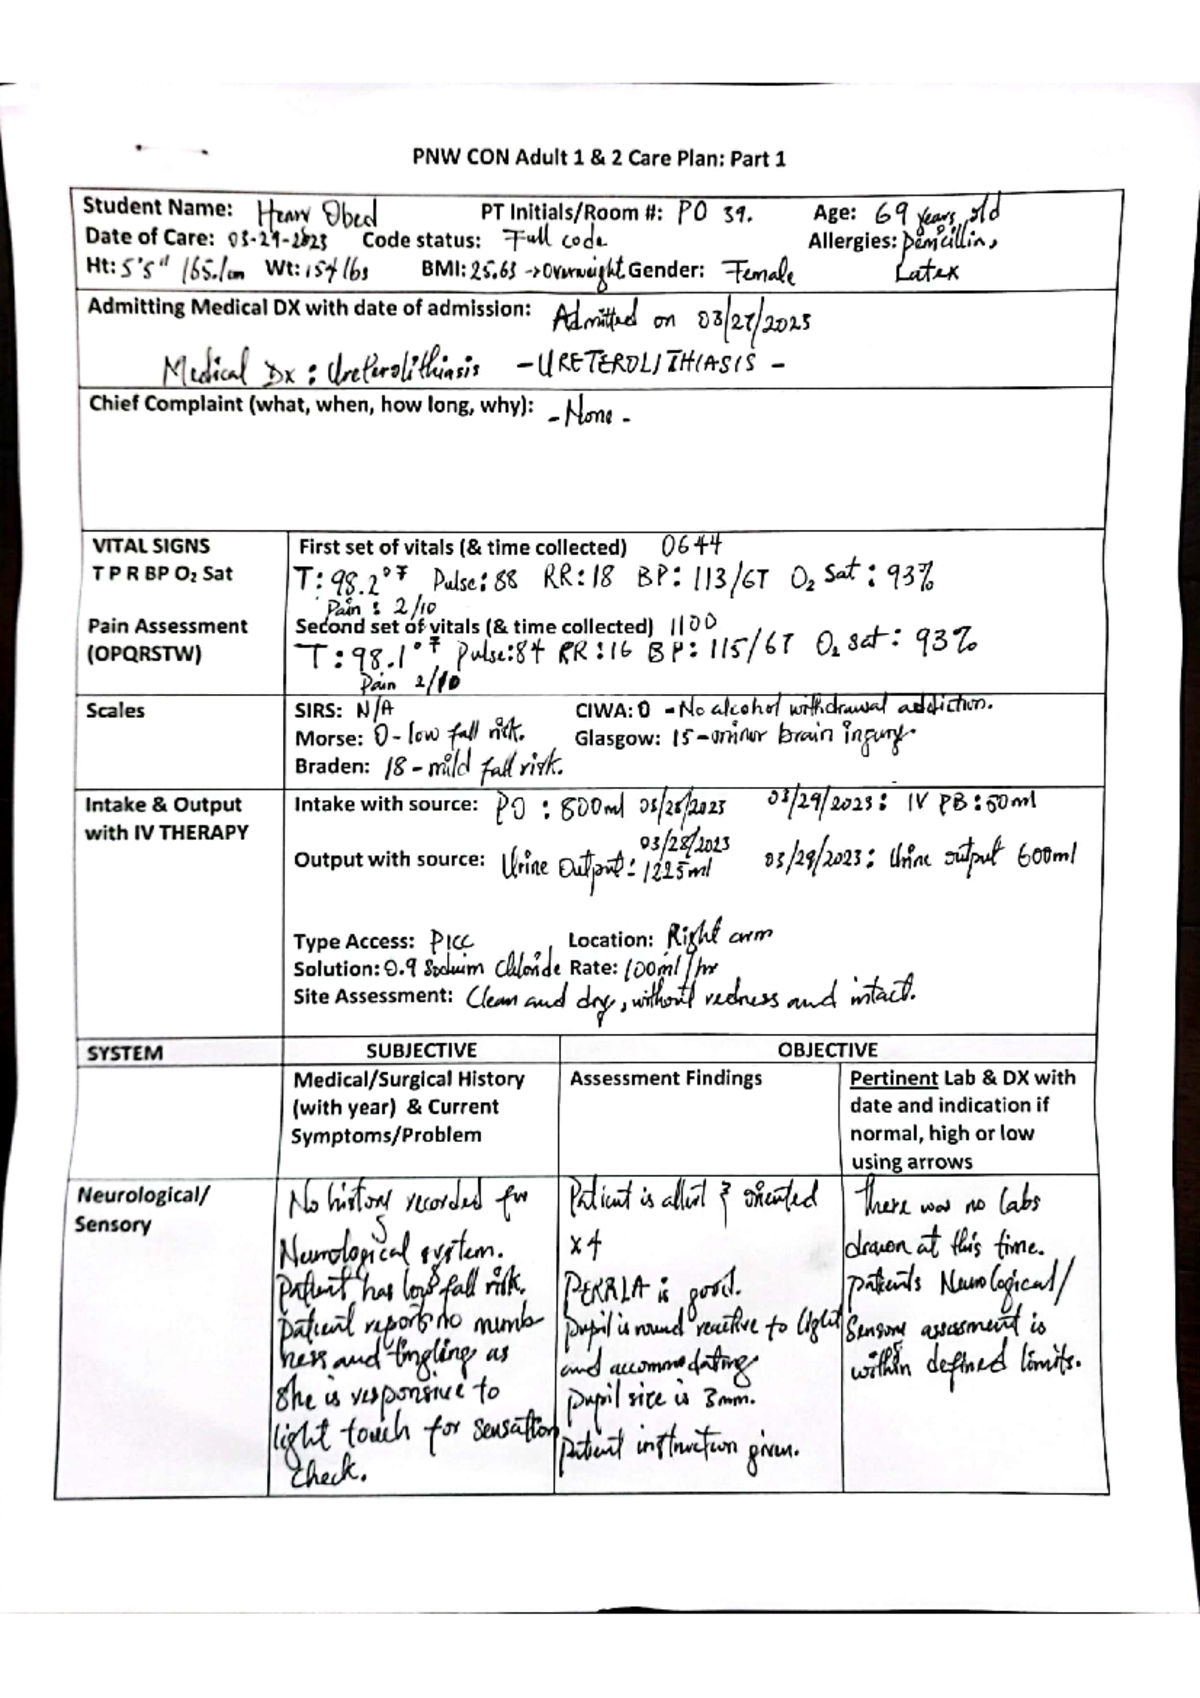 PNW CON Adult 1 & 2 Care Plan: Part 1
Student Name: Henry Obed PT Initials/Room #: PO 39. Age: 69 years old
Date of Care: 03-29-2023 Code status: Full code Allergies: penicillin,
Ht: 5'5" 165.1cm Wt: 154 lbs BMI: 25.63 → Overweight Gender: Female Latex
Admitting Medical DX with date of admission: Admitted on 03/27/2023
Medical Dx: Ureterolithiasis - URETEROLITHIASIS -
Chief Complaint (what, when, how long, why): - None -
VITAL SIGNS First set of vitals (& time collected) 0644
T P R BP O₂ Sat T: 98.2°F Pulse: 88 RR: 18 BP: 113/67 O₂ Sat: 93%
Pain: 2/10
Pain Assessment Second set of vitals (& time collected) 1100
(OPQRSTW) T: 98.1°F Pulse: 84 RR: 16 BP: 115/67 O₂ sat: 93%
Pain 2/10
Scales SIRS: N/A CIWA: 0 - No alcohol withdrawal addiction.
Morse: 0 - low fall risk. Glasgow: 15 - minor brain ingury.
Braden: 18 - mild fall risk.
Intake & Output Intake with source: PO: 800ml 03/28/2023 03/29/2023: IV PB: 50ml
with IV THERAPY
03/28/2023
Output with source: Urine Output: 1225ml 03/29/2023: Urine output 600ml
Type Access: PICC Location: Right arm
Solution: 0.9 Sodium Chloride Rate: 100ml/hr
Site Assessment: Clean and dry, without redness and intact.
SYSTEM SUBJECTIVE OBJECTIVE
Medical/Surgical History
(with year) & Current
Symptoms/Problem
Assessment Findings
Pertinent Lab & DX with
date and indication if
normal, high or low
using arrows
Neurological/
Sensory
No history recorded for
Neurological system.
Patient has low fall risk.
patient reports no numb
ness and tingling as
she is responsive to
light touch for sensation
check.
Patient is allert & oriented
x4
PERRLA is good.
pupil is round reactive to light
and accommodating
pupil size is 3mm.
patient instruction given.
There was no labs
drawn at this time.
patients Neurological/
Sensory assessment is
within defined limits.